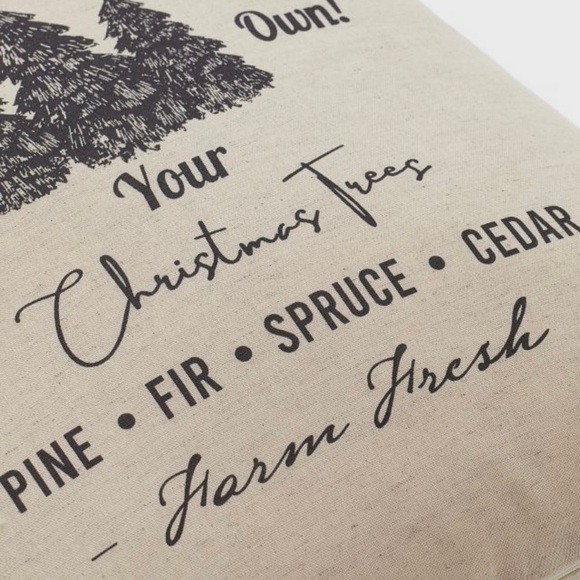 Own!
Your
Christmas Trees
PINE • FIR • SPRUCE • CEDAR
- Farm Fresh